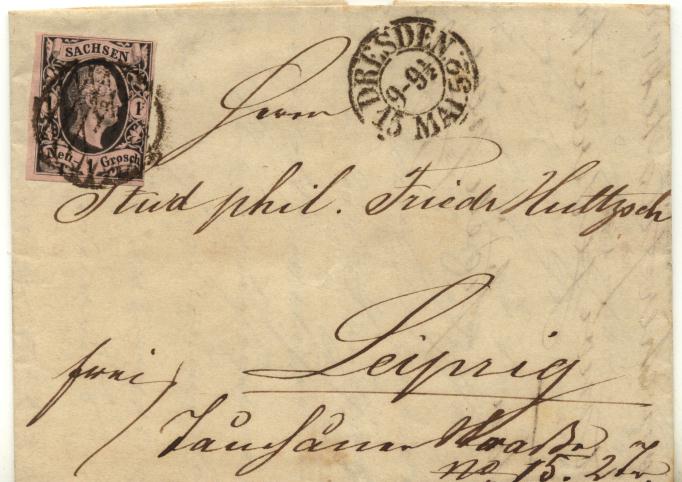 SACHSEN
1 1
Neu- 1 Grosch
DRESDEN
9-9¾
15 MAI 52
Herrn
Stud phil. Friedr Hultzsch
Leipzig
frei
Tauchauer Straße
No 15. 2Tr.